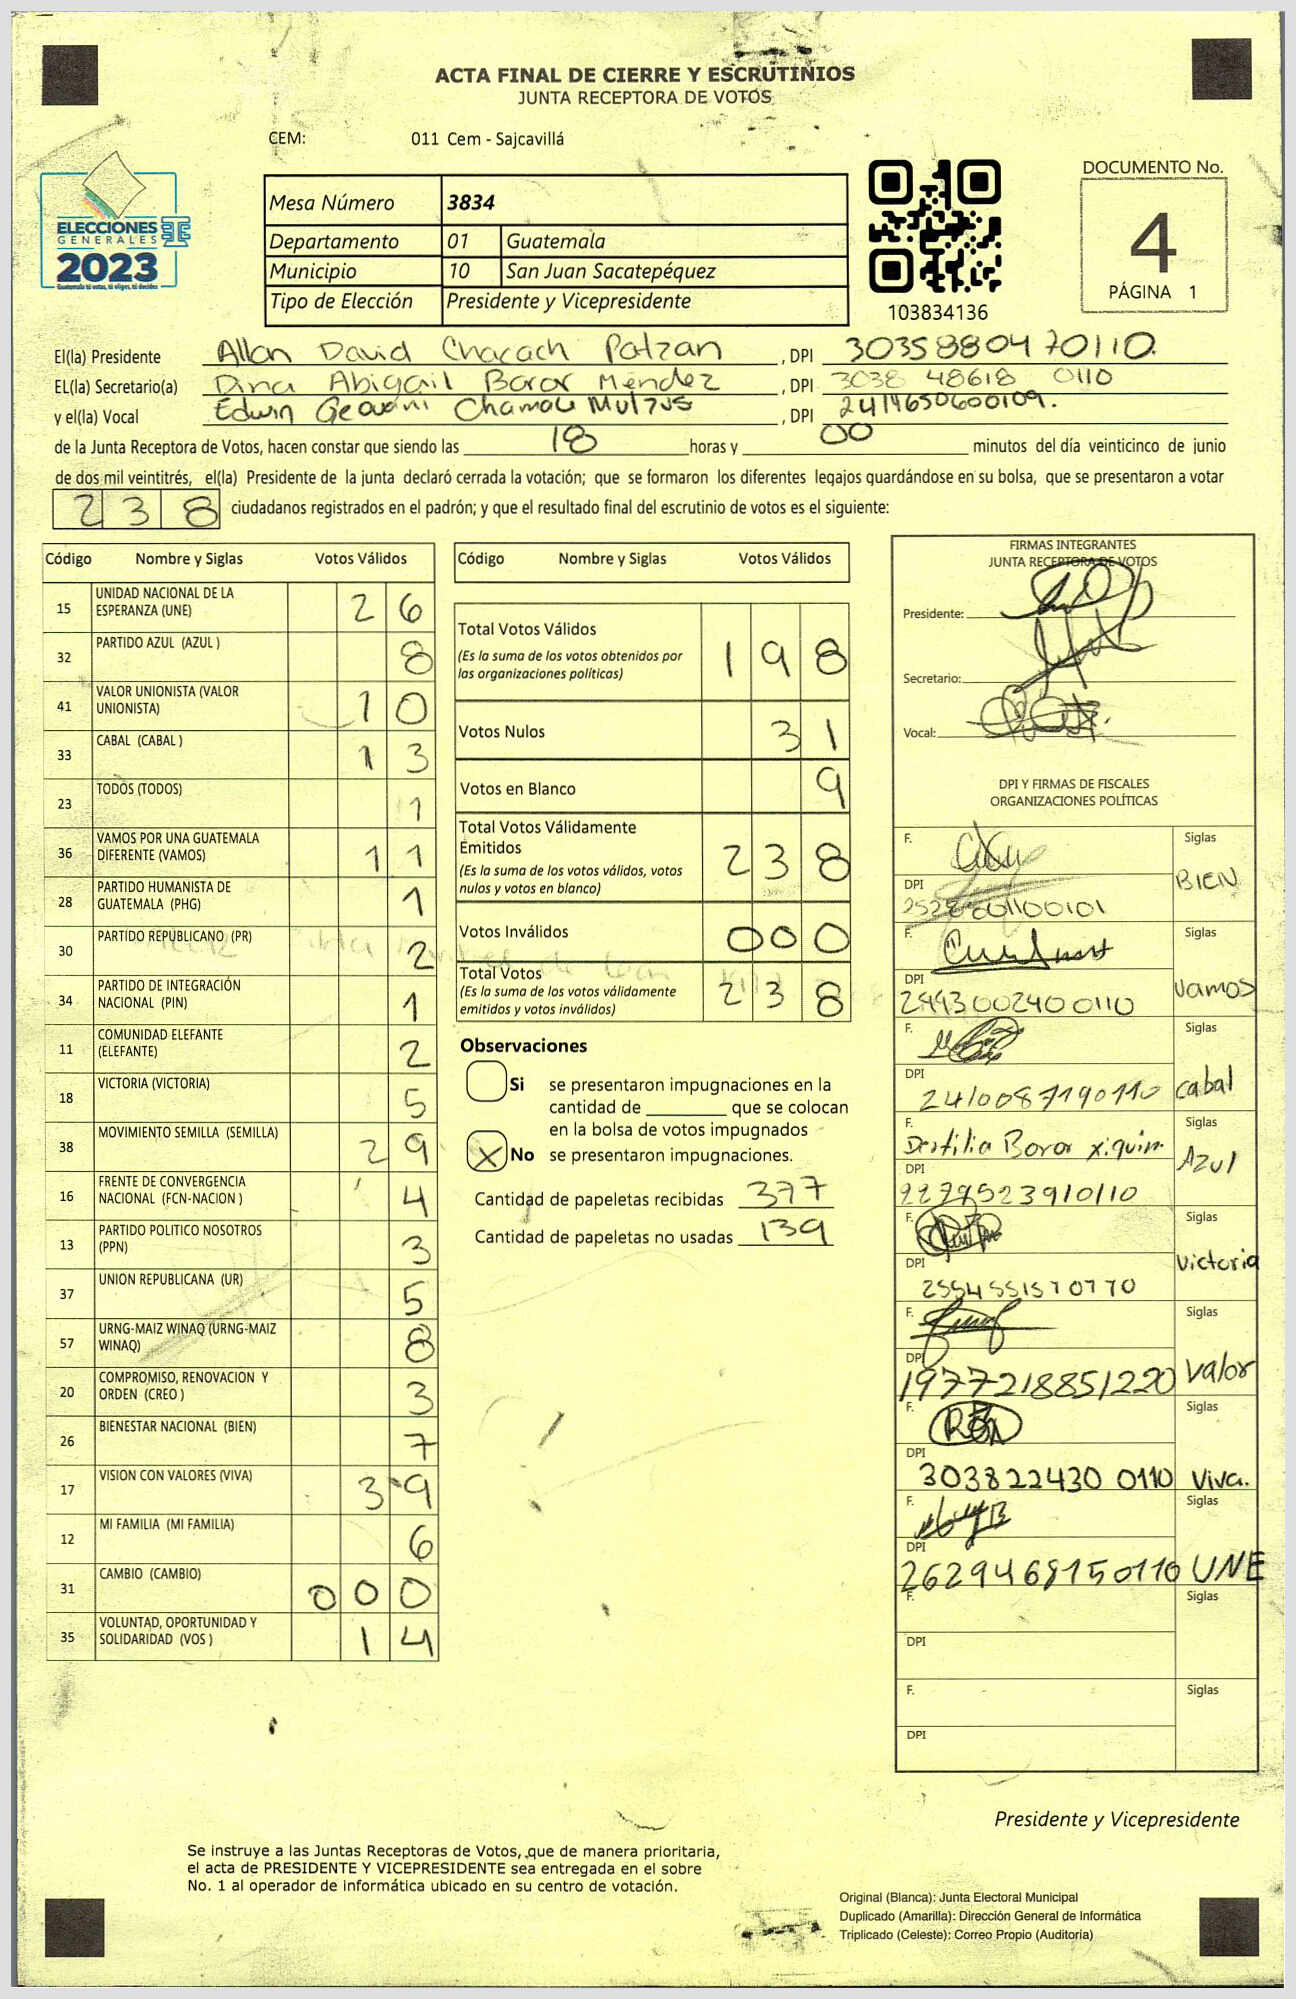 ACTA FINAL DE CIERRE Y ESCRUTINIOS
JUNTA RECEPTORA DE VOTOS
CEM: 011 Cem - Sajcavillá
ELECCIONES
GENERALES
2023
Guatemala tú votas, tú eliges, tú decides
Mesa Número 3834
Departamento 01 Guatemala
Municipio 10 San Juan Sacatepéquez
Tipo de Elección Presidente y Vicepresidente
103834136
DOCUMENTO No.
4
PÁGINA 1
El(la) Presidente Allan David Chacach Patzan , DPI 3035880470110.
EL(la) Secretario(a) Dina Abigail Boror Méndez , DPI 3038 48618 0110
y el(la) Vocal Edwin Geovani , DPI 2414650600109.
de la Junta Receptora de Votos, hacen constar que siendo las 18 horas y 00 minutos del día veinticinco de junio
de dos mil veintitrés, el(la) Presidente de la junta declaró cerrada la votación; que se formaron los diferentes legajos guardándose en su bolsa, que se presentaron a votar
238 ciudadanos registrados en el padrón; y que el resultado final del escrutinio de votos es el siguiente:
Código Nombre y Siglas Votos Válidos
15 UNIDAD NACIONAL DE LA ESPERANZA (UNE) 26
32 PARTIDO AZUL (AZUL ) 8
41 VALOR UNIONISTA (VALOR UNIONISTA) 10
33 CABAL (CABAL ) 13
23 TODOS (TODOS) 1
36 VAMOS POR UNA GUATEMALA DIFERENTE (VAMOS) 11
28 PARTIDO HUMANISTA DE GUATEMALA (PHG) 1
30 PARTIDO REPUBLICANO (PR) 2
34 PARTIDO DE INTEGRACIÓN NACIONAL (PIN) 1
11 COMUNIDAD ELEFANTE (ELEFANTE) 2
18 VICTORIA (VICTORIA) 5
38 MOVIMIENTO SEMILLA (SEMILLA) 29
16 FRENTE DE CONVERGENCIA NACIONAL (FCN-NACION ) 4
13 PARTIDO POLITICO NOSOTROS (PPN) 3
37 UNION REPUBLICANA (UR) 5
57 URNG-MAIZ WINAQ (URNG-MAIZ WINAQ) 8
20 COMPROMISO, RENOVACION Y ORDEN (CREO ) 3
26 BIENESTAR NACIONAL (BIEN) 7
17 VISION CON VALORES (VIVA) 39
12 MI FAMILIA (MI FAMILIA) 6
31 CAMBIO (CAMBIO) 000
35 VOLUNTAD, OPORTUNIDAD Y SOLIDARIDAD (VOS ) 14
Código Nombre y Siglas Votos Válidos
Total Votos Válidos 198
(Es la suma de los votos obtenidos por
las organizaciones políticas)
Votos Nulos 31
Votos en Blanco 9
Total Votos Válidamente
Emitidos 238
(Es la suma de los votos válidos, votos
nulos y votos en blanco)
Votos Inválidos 000
Total Votos 238
(Es la suma de los votos válidamente
emitidos y votos inválidos)
Observaciones
Si se presentaron impugnaciones en la
cantidad de ________ que se colocan
en la bolsa de votos impugnados
X No se presentaron impugnaciones.
Cantidad de papeletas recibidas 377
Cantidad de papeletas no usadas 139
FIRMAS INTEGRANTES
JUNTA RECEPTORA DE VOTOS
Presidente:
Secretario:
Vocal:
DPI Y FIRMAS DE FISCALES
ORGANIZACIONES POLÍTICAS
F. Siglas
DPI BIEN
F. Siglas
DPI 2993002400110 vamos
F. Siglas
DPI 2410087190110 cabal
F. Boror Siglas
DPI 2279523910110 Azul
F. Siglas
DPI victoria
F. Siglas
DPI 1977218851220 Valor
F. Siglas
DPI 303822430 0110 Viva.
F. Siglas
DPI 2629468150110 UNE
F. Siglas
DPI
F. Siglas
DPI
Presidente y Vicepresidente
Se instruye a las Juntas Receptoras de Votos, que de manera prioritaria,
el acta de PRESIDENTE Y VICEPRESIDENTE sea entregada en el sobre
No. 1 al operador de informática ubicado en su centro de votación.
Original (Blanca): Junta Electoral Municipal
Duplicado (Amarilla): Dirección General de Informática
Triplicado (Celeste): Correo Propio (Auditoria)